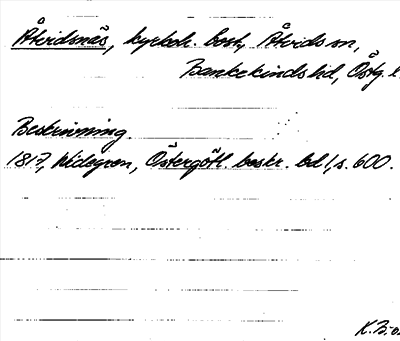 Åtvidsnäs, kyrkoh. bost., Åtvids sn,
Bankekinds hd, Östg. l.
Beskrivning
1817, Widegren, Östergötl. beskr. bd 1, s. 600.
K.B:s